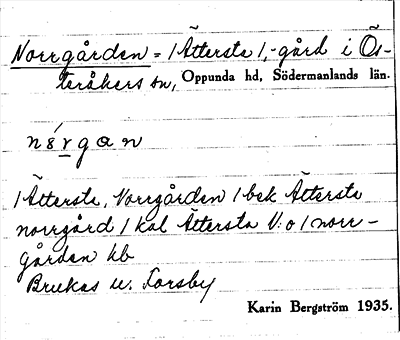 Norrgården = / Ättersta /,-gård i Ös-
teråkers sn, Oppunda hd, Södermanlands län.
nórgan
/ Ättersta, Norrgården / bek Ättersta
norrgård / kal Ättersta N:o 1 norr-
gården kb
Brukas u. Forsby
Karin Bergström 1935.